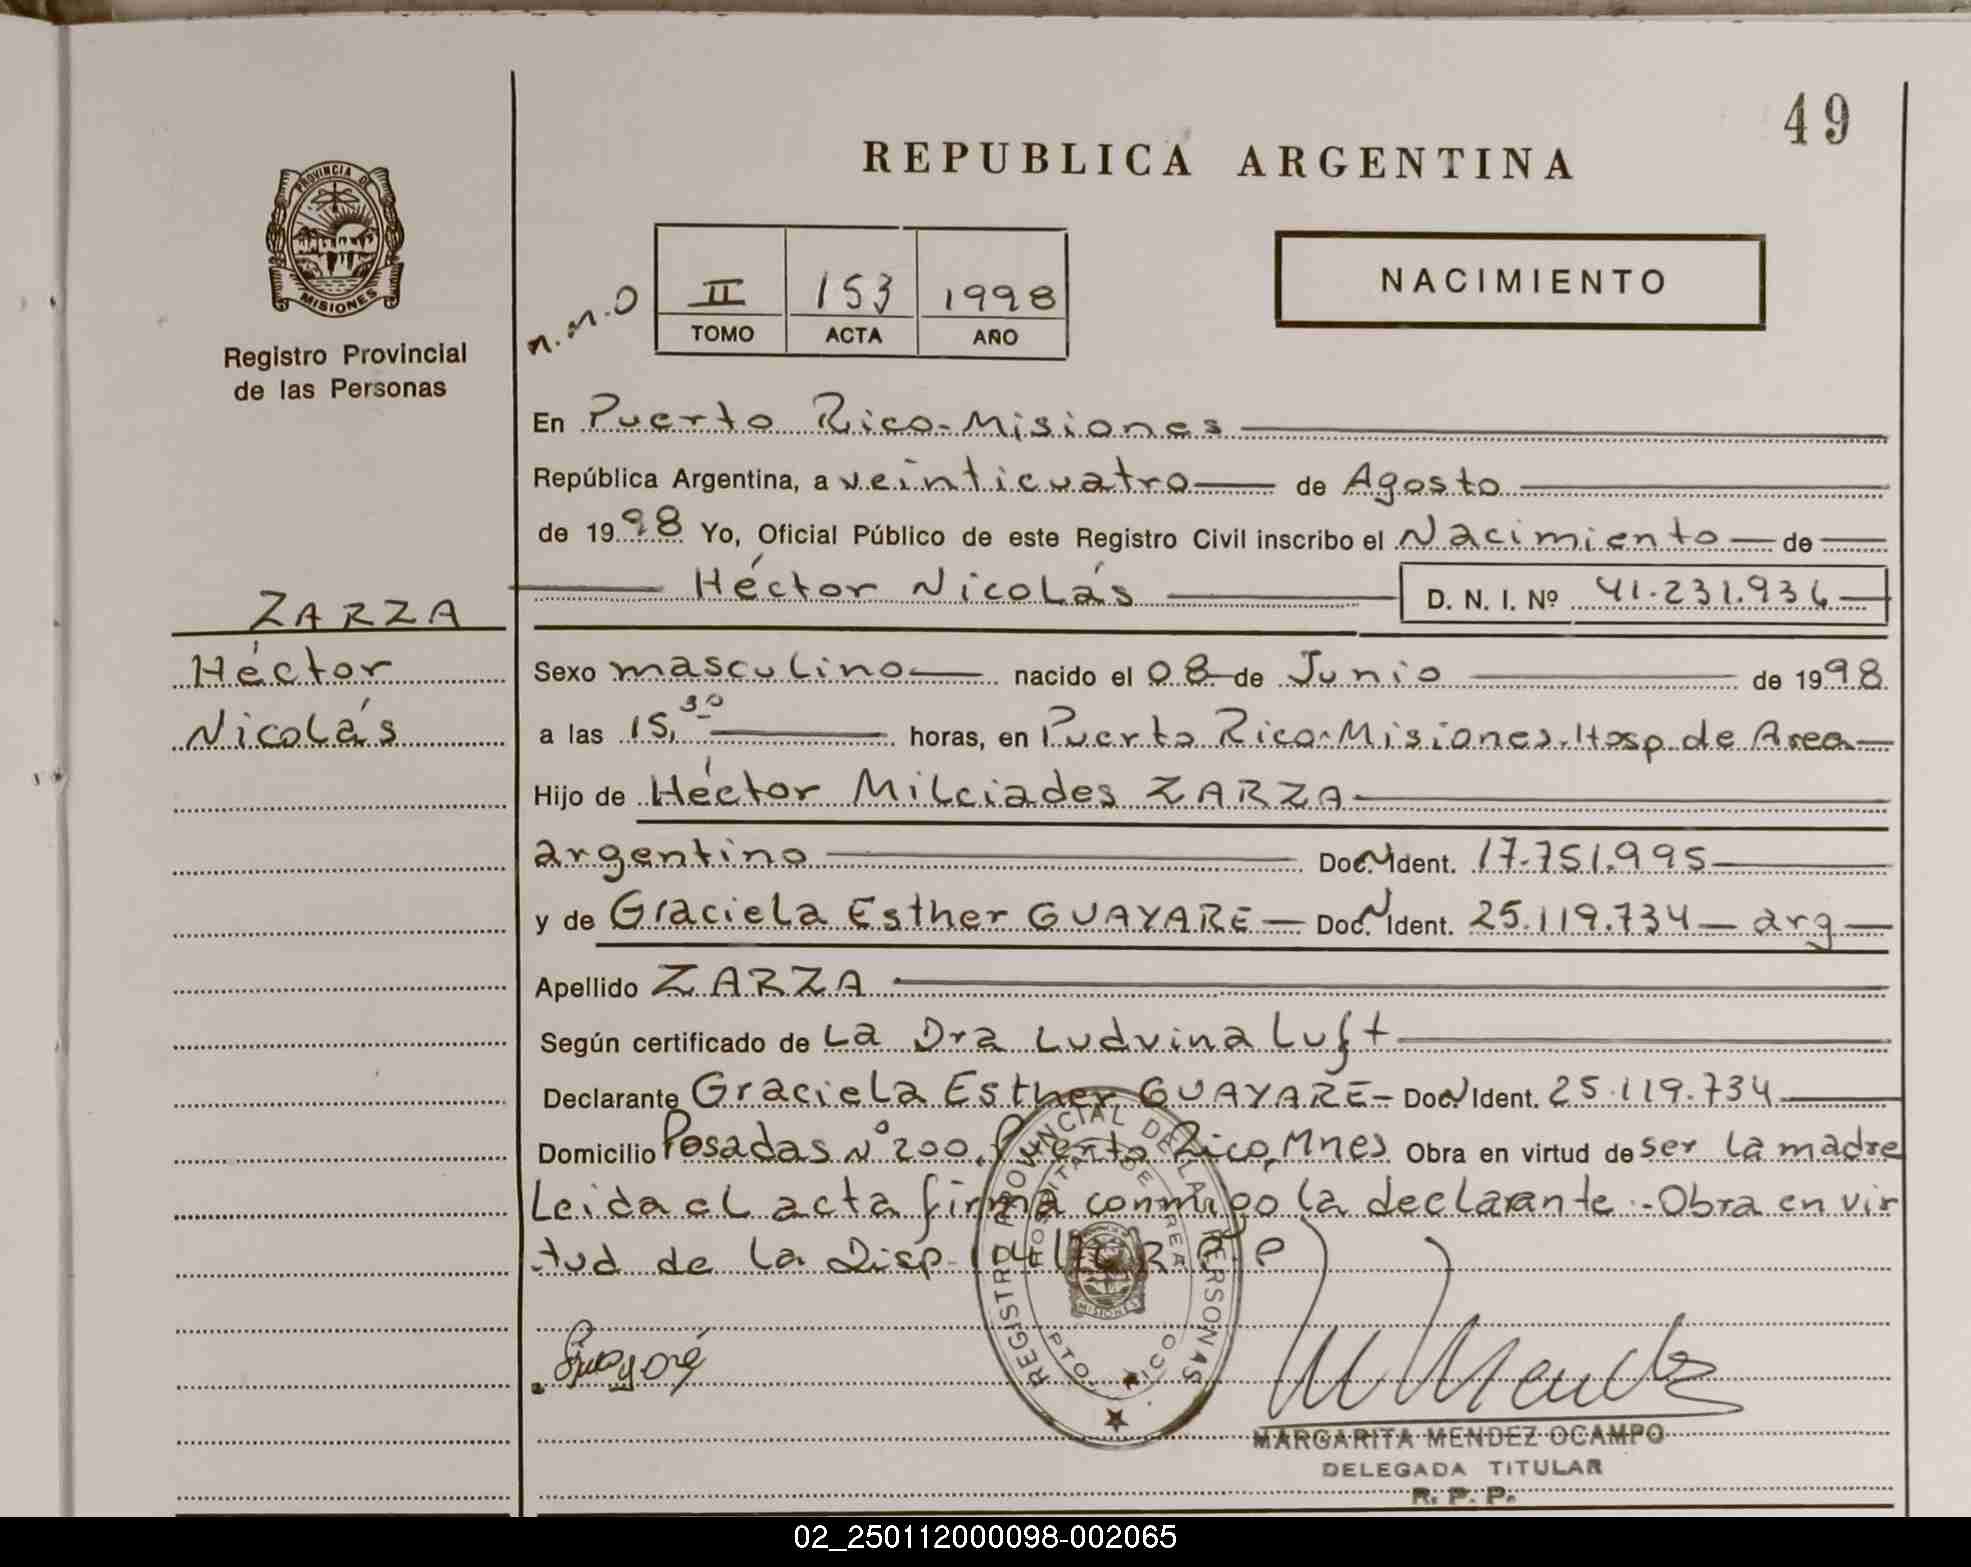 49
REPUBLICA ARGENTINA
PROVINCIA DE
MISIONES
Registro Provincial
de las Personas
n.n.o
II 153 1998
TOMO ACTA AÑO
NACIMIENTO
En Puerto Rico-Misiones
República Argentina, a veinticuatro de Agosto
de 1998 Yo, Oficial Público de este Registro Civil inscribo el Nacimiento de
Héctor Nicolás D. N. I. Nº 41.231.936
ZARZA
Héctor
Nicolás
Sexo masculino nacido el 08 de Junio de 1998
a las 15,30 horas, en Puerto Rico-Misiones.Hosp.de Area
Hijo de Héctor Milciades ZARZA
argentino Doc.N Ident. 17.751.995
y de Graciela Esther GUAYARE Doc.N Ident. 25.119.734 arg
Apellido ZARZA
Según certificado de La Dra Ludvina Luft
Declarante Graciela Esther GUAYARE Doc.N Ident. 25.119.734
Domicilio Posadas Nº 200, Puerto Rico, Mnes Obra en virtud de ser la madre
Leida el acta firma conmigo la declarante.-Obra en vir
tud de la Disp
REGISTRO PROVINCIAL DE LAS PERSONAS
HOSPITAL DE AREA
PTO. RICO
MISIONES
Guayaré
M Mendez
MARGARITA MENDEZ OCAMPO
DELEGADA TITULAR
R. P. P.
02_250112000098-002065